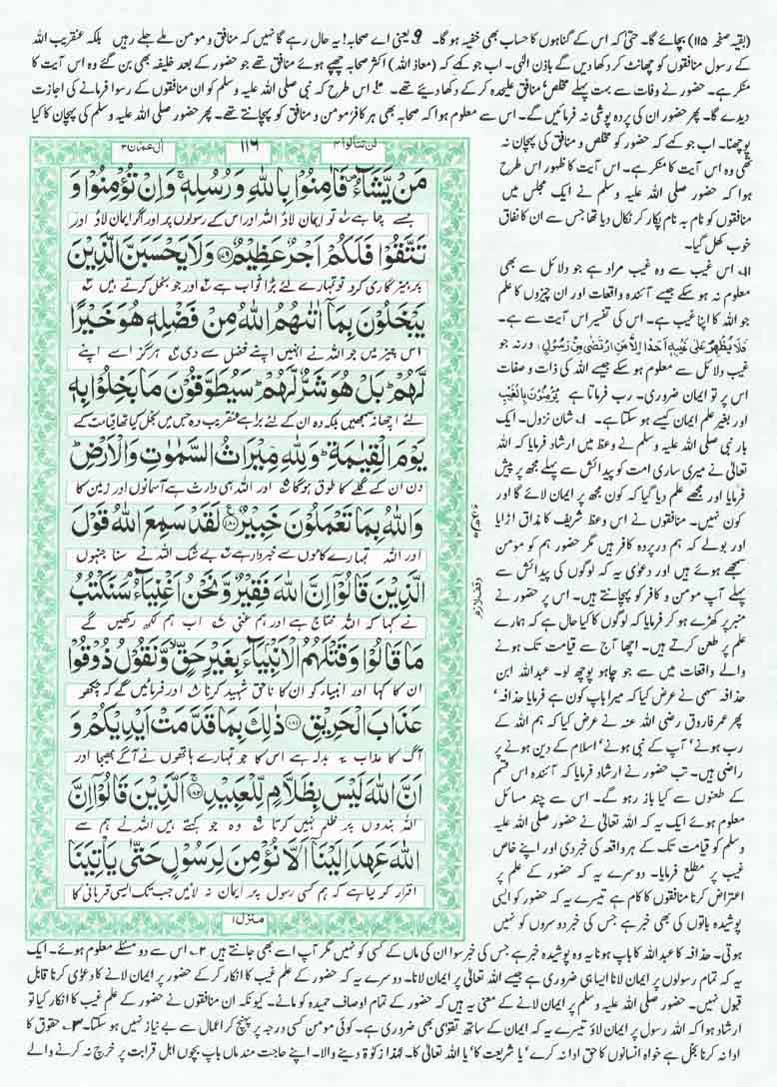 (بقیہ صفحہ ۱۱۵) بچائے گا۔ حتیٰ کہ اس کے گناہوں کا حساب بھی خفیہ ہو گا۔ ۹ یعنی اے صحابہ! یہ حال رہے گا نہیں کہ منافق و مومن ملے جلے رہیں بلکہ عنقریب اللہ
کے رسول منافقوں کو چھانٹ کر دکھا دیں گے باذن الٰہی۔ اب جو کہے کہ (معاذ اللہ) اکثر صحابہ چھپے ہوئے منافق تھے جو حضور کے بعد خلیفہ بھی بن گئے وہ اس آیت کا
منکر ہے۔ حضور نے وفات سے بہت پہلے مخلص و منافق علیحدہ کر کے دکھا دیئے تھے۔ اس طرح کہ نبی صلی اللہ علیہ وسلم کو ان منافقوں کے رسوا فرمانے کی اجازت
دیدے گا۔ پھر حضور ان کی پردہ پوشی نہ فرمائیں گے۔ اس سے معلوم ہوا کہ صحابہ بھی ہر کافر و مومن و منافق کو پہچانتے تھے۔ پھر حضور صلی اللہ علیہ وسلم کی پہچان کا کیا
پوچھنا۔ اب جو کہے کہ حضور کو مخلص و منافق کی پہچان نہ
تھی وہ اس آیت کا منکر ہے۔ اس آیت کا ظہور اس طرح
ہوا کہ حضور صلی اللہ علیہ وسلم نے ایک مجلس میں
منافقوں کو نام بہ نام پکار کر نکال دیا تھا جس سے ان کا نفاق
خوب کھل گیا۔
۱۱۔ اس غیب سے وہ غیب مراد ہے جو دلائل سے بھی
معلوم نہ ہو سکے جیسے آئندہ واقعات اور ان چیزوں کا علم
جو اللہ کا اپنا غیب ہے۔ اس کی تفسیر اس آیت سے ہے۔
فَلَا يُظْهِرُ عَلٰى غَيْبِهٖٓ اَحَدًا اِلَّا مَنِ ارْتَضٰى مِنْ رَّسُوْلٍ؛ ورنہ جو
غیب دلائل سے معلوم ہو سکے جیسے اللہ کی ذات و صفات
اس پر تو ایمان ضروری۔ رب فرماتا ہے يُؤْمِنُوْنَ بِالْغَيْبِ
اور بغیر علم ایمان کیسے ہو سکتا ہے۔ ۱۔ شان نزول۔ ایک
بار نبی صلی اللہ علیہ وسلم نے وعظ میں ارشاد فرمایا کہ اللہ
تعالیٰ نے میری ساری امت کو پیدائش سے پہلے مجھ پر پیش
فرمایا اور مجھے علم دیا گیا کہ کون مجھ پر ایمان لائے گا اور
کون نہیں۔ منافقوں نے اس وعظ شریف کا مذاق اڑایا
اور بولے کہ ہم درپردہ کافر ہیں مگر حضور ہم کو مومن
سمجھے ہوئے ہیں اور دعویٰ یہ کہ لوگوں کی پیدائش سے
پہلے آپ مومن و کافر کو پہچانتے ہیں۔ اس پر حضور نے
منبر پر کھڑے ہو کر فرمایا کہ لوگوں کا کیا حال ہے کہ ہمارے
علم پر طعن کرتے ہیں۔ اچھا آج سے قیامت تک ہونے
والے واقعات میں سے جو چاہو پوچھ لو۔ عبداللہ ابن
حذافہ سہمی نے عرض کیا کہ میرا باپ کون ہے فرمایا حذافہ'
پھر عمر فاروق رضی اللہ عنہ نے عرض کیا کہ ہم اللہ کے
رب ہونے' آپ کے نبی ہونے' اسلام کے دین ہونے پر
راضی ہیں۔ تب حضور نے ارشاد فرمایا کہ آئندہ اس قسم
کے طعنوں سے کیا باز رہو گے۔ اس سے چند مسائل
معلوم ہوئے ایک یہ کہ اللہ تعالیٰ نے حضور صلی اللہ علیہ
وسلم کو قیامت تک کے ہر واقعہ کی خبر دی اور اپنے خاص
غیب پر مطلع فرمایا۔ دوسرے یہ کہ حضور کے علم پر
اعتراض کرنا منافقوں کا کام ہے تیسرے یہ کہ حضور کو ایسی
پوشیدہ باتوں کی بھی خبر ہے جس کی خبر دوسروں کو نہیں
لن تنالوا ۴
۱۱۶
اٰل عمران ۳
مَنْ يَّشَآءُ فَاٰمِنُوْا بِاللّٰهِ وَرُسُلِهٖ وَاِنْ تُؤْمِنُوْا وَ
جسے چاہے تو ایمان لاؤ اللہ اور اس کے رسولوں پر اور اگر ایمان لاؤ اور
تَتَّقُوْا فَلَكُمْ اَجْرٌ عَظِيْمٌ ۝۱۷۹ وَلَا يَحْسَبَنَّ الَّذِيْنَ
پرہیزگاری کرو تو تمہارے لئے بڑا ثواب ہے اور جو بخل کرتے ہیں
يَبْخَلُوْنَ بِمَآ اٰتٰىهُمُ اللّٰهُ مِنْ فَضْلِهٖ هُوَ خَيْرًا
اس چیز میں جو اللہ نے انہیں اپنے فضل سے دی ہرگز اسے اپنے
لَّهُمْ ؕ بَلْ هُوَ شَرٌّ لَّهُمْ ؕ سَيُطَوَّقُوْنَ مَا بَخِلُوْا بِهٖ
لئے اچھا نہ سمجھیں بلکہ وہ ان کے لئے برا ہے عنقریب وہ جس میں بخل کیا تھا قیامت کے
يَوْمَ الْقِيٰمَةِ ؕ وَلِلّٰهِ مِيْرَاثُ السَّمٰوٰتِ وَالْاَرْضِ ؕ
دن ان کے گلے کا طوق ہوگا اور اللہ ہی وارث ہے آسمانوں اور زمین کا
وَاللّٰهُ بِمَا تَعْمَلُوْنَ خَبِيْرٌ ۝۱۸۰ لَقَدْ سَمِعَ اللّٰهُ قَوْلَ
اور اللہ تمہارے کاموں سے خبردار ہے بے شک اللہ نے سنا جنہوں
الَّذِيْنَ قَالُوْٓا اِنَّ اللّٰهَ فَقِيْرٌ وَّنَحْنُ اَغْنِيَآءُ ۘ سَنَكْتُبُ
نے کہا کہ اللہ محتاج ہے اور ہم غنی اب ہم لکھ رکھیں گے
مَا قَالُوْا وَقَتْلَهُمُ الْاَنْۢبِيَآءَ بِغَيْرِ حَقٍّ ۙ وَّنَقُوْلُ ذُوْقُوْا
ان کا کہا اور انبیاء کو ان کا ناحق شہید کرنا اور فرمائیں گے کہ چکھو
عَذَابَ الْحَرِيْقِ ۝۱۸۱ ذٰلِكَ بِمَا قَدَّمَتْ اَيْدِيْكُمْ وَ
آگ کا عذاب یہ بدلہ ہے اس کا جو تمہارے ہاتھوں نے آگے بھیجا اور
اَنَّ اللّٰهَ لَيْسَ بِظَلَّامٍ لِّلْعَبِيْدِ ۝۱۸۲ اَلَّذِيْنَ قَالُوْٓا اِنَّ
اللہ بندوں پر ظلم نہیں کرتا وہ جو کہتے ہیں اللہ نے ہم سے
اللّٰهَ عَهِدَ اِلَيْنَآ اَلَّا نُؤْمِنَ لِرَسُوْلٍ حَتّٰى يَاْتِيَنَا
اقرار کر لیا ہے کہ ہم کسی رسول پر ایمان نہ لائیں جب تک ایسی قربانی کا
منزل ۱
وقف لازم
ہوتی۔ حذافہ کا عبداللہ کا باپ ہونا یہ وہ پوشیدہ خبر ہے جس کی خبر سوا ان کی ماں کے کسی کو نہیں مگر آپ اسے بھی جانتے ہیں ۲۔ اس سے دو مسئلے معلوم ہوئے۔ ایک
یہ کہ تمام رسولوں پر ایمان لانا ایسا ہی ضروری ہے جیسے اللہ تعالیٰ پر ایمان لانا۔ دوسرے یہ کہ حضور کے علم غیب کا انکار کر کے حضور پر ایمان لانے کا دعویٰ کرنا قابل
قبول نہیں۔ حضور صلی اللہ علیہ وسلم پر ایمان لانے کے معنی یہ ہیں کہ حضور کے تمام اوصاف حمیدہ کو مانے۔ کیونکہ ان منافقوں نے حضور کے علم غیب کا انکار کیا تو
ارشاد ہوا کہ اللہ رسول پر ایمان لاؤ تیسرے یہ کہ ایمان کے ساتھ تقویٰ بھی ضروری ہے۔ کوئی مومن کسی درجہ پر پہنچ کر اعمال سے بے نیاز نہیں ہو سکتا۔ ۳۔ حقوق کا
ادا نہ کرنا بخل ہے خواہ انسانوں کا حق ادا نہ کرے' یا شریعت کا' یا اللہ تعالیٰ کا۔ لہٰذا زکوٰة نہ دینے والا۔ اپنے حاجت مند ماں باپ بچوں اہل قرابت پر خرچ نہ کرنے والے